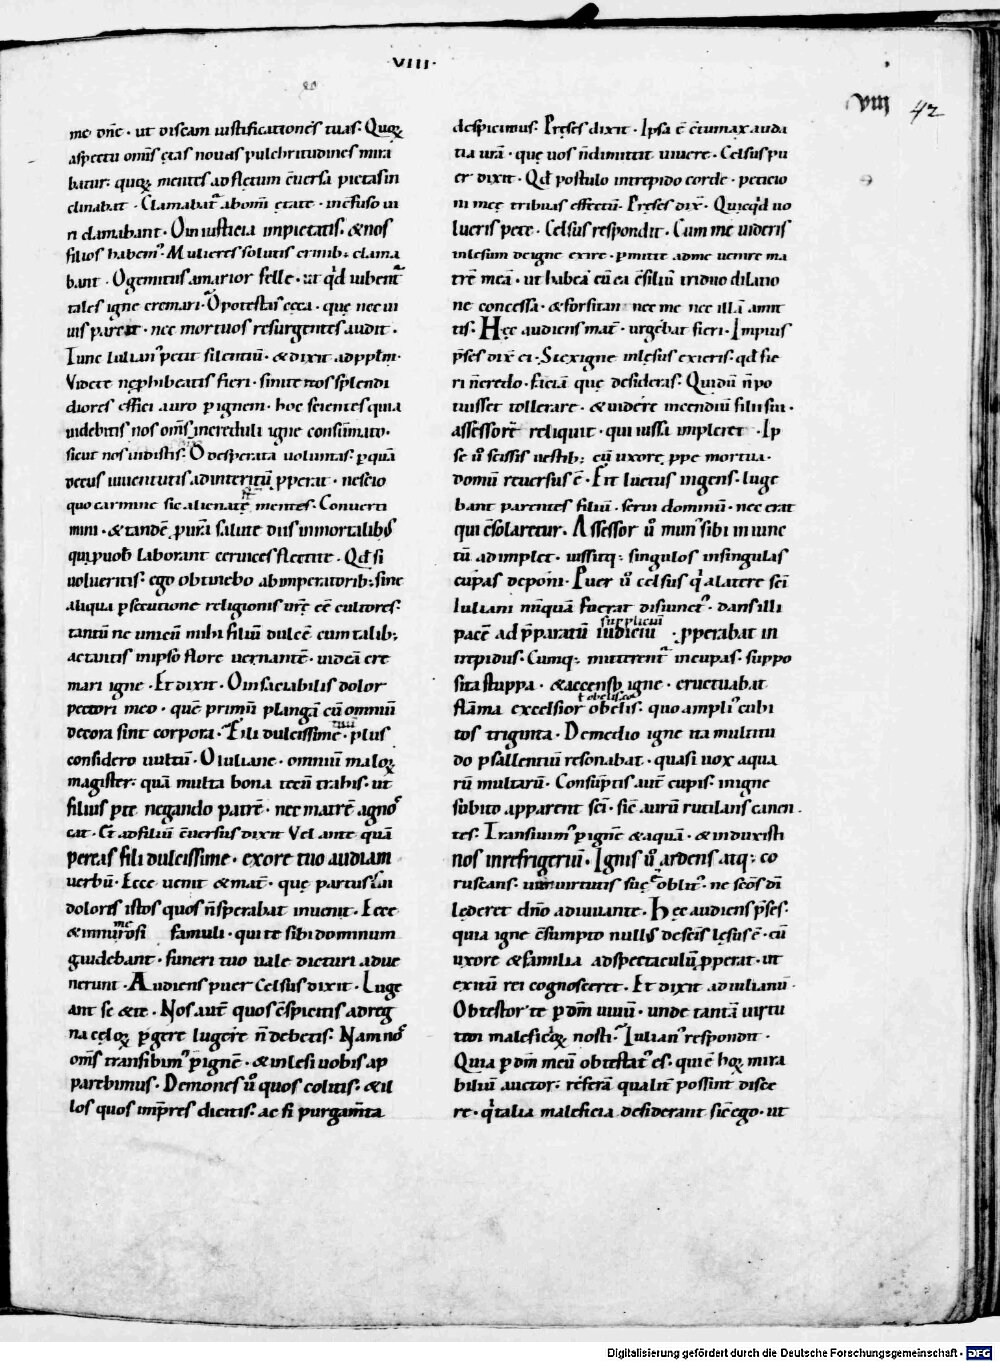 VIII·
VIII 42
me dn̄e · ut discam iustificationes tuas: Quoꝝ
aspectu oms̄ ętas nouas pulchritudines mira
batur: quoꝝ mentes ad fletum ēuersa pietas in
clinabat · Clamabat᷑ ab omī ętate · in cōfuso ui
ri clamabant · O iniusticia impietatis: & nos
filios habem᷒: Mulieres solutis crinib; clama
bant · O gemitus amarior felle · ut qd̄ iubent᷑
tales igne cremari: O potestas cęca · que nec ui
uis parcit · nec mortuos resurgentes audit ·
Tunc Iulian᷒ petit silentiū · & dixit ad pp̄lm·
Videte ne ꝓhibeatis fieri · sinite nos splendi
diores effici auro ꝑ ignem · hoc scientes quia
uidebitis nos oms̄ increduli igne consūmato·
sicut nos uidistis: O desperata uoluntas: ꝑ quā
decus iuuentutis ad interitū ꝓperat · nescio
quo carmine sic alienate mentes: Conuerti
mini · & tandē purā salute diis inmortalibus
qui ꝓ uob̄ laborant ceruices flectite · Qd̄ si
uolueritis: ego obtinebo ab imperatorib; sine
aliqua ꝑsecutione religionis urē ēe cultores:
tantū ne unicū mihi filiū dulcē cum talib;
ac tantis in ipso flore uernantē · uideā cre
mari igne · Et dixit · O insaciabilis dolor
pectori meo · quē primū plangā cū omniū
decora sint corpora · Fili dulcissime · plus
considero uultū · O Iuliane · omniū maloꝝ
magister: quā multa bona tecū trahis: ut
filius pie negando patrē · nec matrē agnos
cat · Et ad filiū ēuersus dixit Vel ante quā
pereas fili dulcissime · exore tuo audiam
uerbū · Ecce uenit & mat̄ · que partus sui
doloris istos quos n̄ sperabat inuenit · Ecce
& innumerosi famuli · qui te sibi dominum
gaudebant · funeri tuo uale dicturi adue
nerunt · Audiens puer Celsus dixit · Luge
ant se & te · Nos aut̄ quos c̄spicitis ad reg
na cęloꝝ ꝑgere lugere n̄ debetis: Nam nos
oms̄ transibim᷒ ꝑ ignē · & inlesi uobis ap
parebimus · Demones ů quos colitis: & il
los quos inp̄res dicitis: ac si purgam̄ta
despicimus: Pręses dixit · Ipsa ē c̄tumax auda
tia urā · que uos n̄ dimittit uiuere · Celsus pu
er dixit · Qd̄ postulo intrepido corde · peticio
ni meę tribuas effectū· Pręses dix̄ · Quicqd̄ uo
lueris pete · Celsus respondit · Cum me uideris
inlesum de igne exire · ꝑmitte ad me uenire ma
trē meā · ut habeā cū ea c̄siliū triduo dilatio
ne concessa · & forsitan nec me nec illā amit
tis: Hęc audiens mat̄ · urgebat fieri · Impius
p̄ses dix̄ ei · Si ex igne inlesus exieris · qd̄ fie
ri n̄ credo · faciā que desideras: Qui dū n̄ po
tuisset tollerare · & uidere incendiū filii sui ·
assessorē reliquit · qui iussa impleret · Ip
se ů scissis uestib; cū uxore ꝓpe mortua ·
domū reuersus ē · Fit luctus ingens · luge
bant parentes filiū · serui dominū · nec erat
qui c̄solaretur · Assessor ů mun᷒ sibi iniunc
tū adimplet · iussitq; singulos in singulas
cupas deponi · Puer ů celsus q̇ a latere sc̄i
Iuliani nūquā fuerat disiunct᷒ · dans illi
suppliciū
pacē ad p̄paratū iudiciū · ꝓperabat in
trepidus: Cumq; mitterent᷑ in cupas · suppo
sita stuppa · & accenso igne · eructuabat
ł obeliscos
flāma excelsior obelis · quo ampli᷒ cubi
tos triginta · De medio igne ita multitu
do psallentiū resonabat · quasi uox aqua
rū multarū · Consūptis aut̄ cupis · in igne
subito apparent sc̄i · sic̄ aurū rutilans canen
tes: Transiuim᷒ ꝑ ignē & aquā · & induxisti
nos in refrigeriū · Ignis ů ardens atq; co
ruscans · uirtutis suę oblit᷒ · ne sc̄os dī
lęderet dn̄o adiuuante · Hęc audiens p̄ses:
quia igne c̄sumpto nullus de sc̄is lęsus ē · cū
uxore & familia ad spectaculū ꝓperat · ut
exitū rei cognosceret · Et dixit ad iulianū·
Obtestor te ꝑ dm̄ uiuū · unde tantā uirtu
tem maleficioꝝ nosti: Iulian᷒ respondit ·
Quia ꝑ dm̄ meū obtestat᷒ es · qui ē hoꝝ mira
biliū auctor: referā qualit̄ possint disce
re · q̇ talia maleficia desiderant sic̄ ego · ut
Digitalisierung gefördert durch die Deutsche Forschungsgemeinschaft · DFG